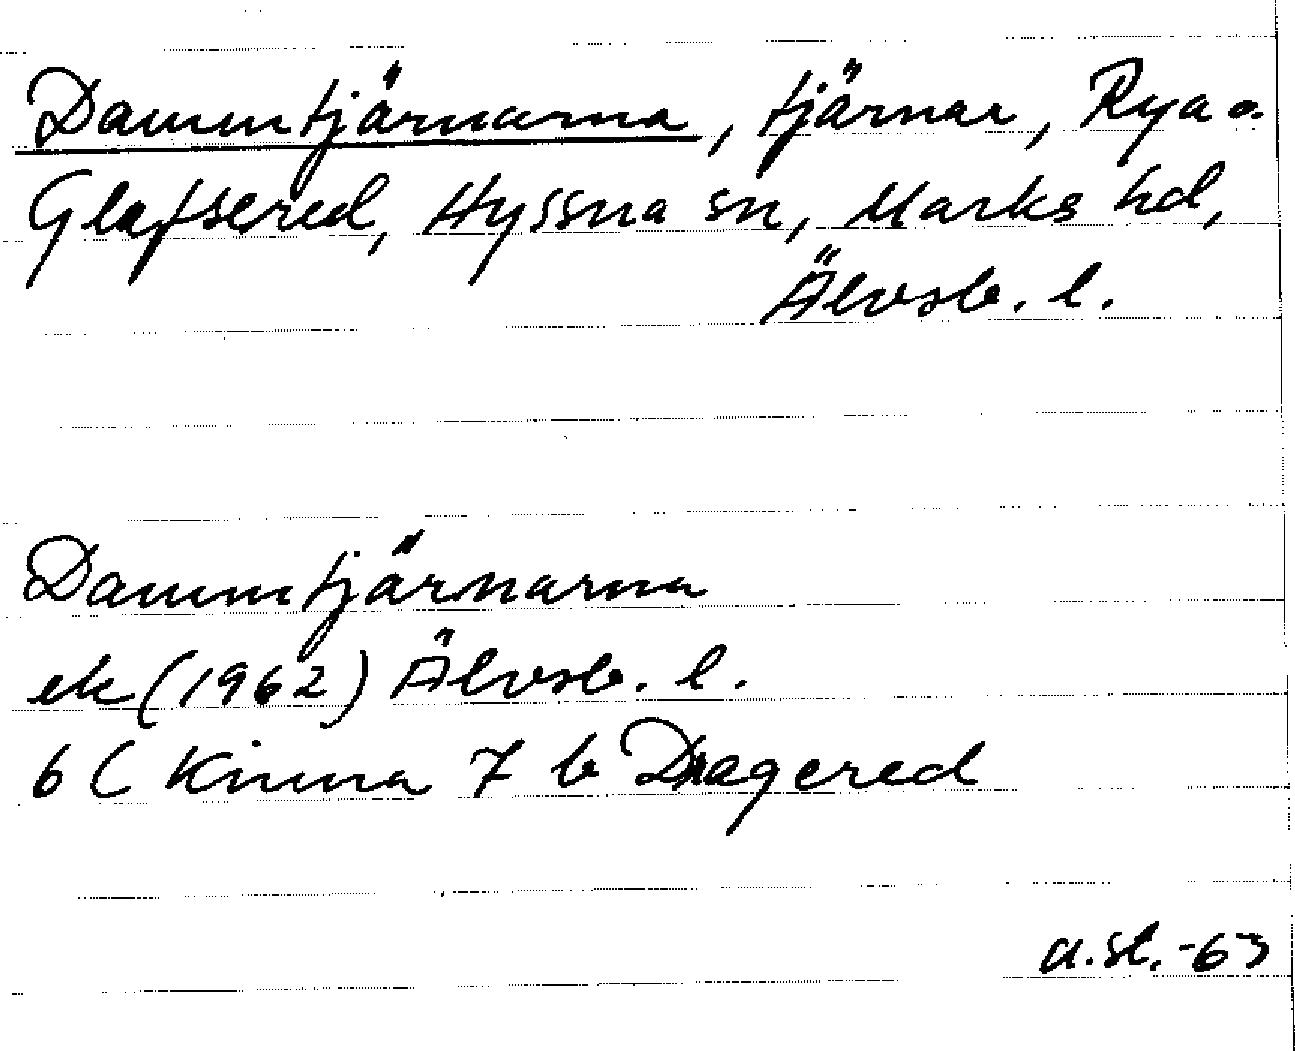 Dammtjärnarna, tjärnar, Rya o.
Glafsered, Hyssna sn, Marks hd,
Älvsb. l.
Dammtjärnarna
ek (1962) Älvsb. l.
6 C Kinna 7 b Dragered
a.st. -63